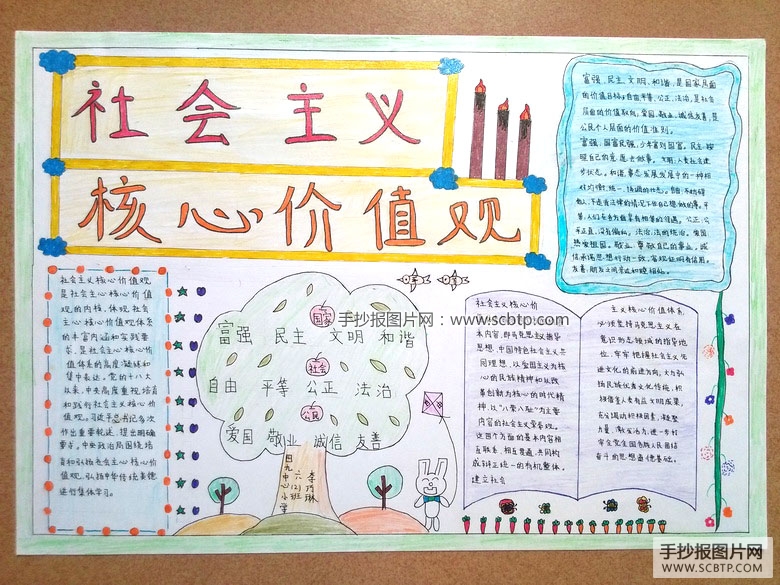 社会主义
核心价值观
富强、民主、文明、和谐,是国家层面
的价值目标;自由平等、公正、法治,是社会
层面的价值取向;爱国、敬业、诚信友善,是
公民个人层面的价值准则。
富强,国富民强,少年富则国富。民主,按
社会主义核心价值观
是社会主义核心价值
观的内核,体现社会
主义核心价值观体系
的丰富内涵和实践要
求,是社会主义核心价
值体系的高度凝练和
集中表达。党的十八大
以来,中央高度重视培育
和践行社会主义核心价
值观。习近平总书记多次
作出重要论述、提出明确
要求。中央政治局围绕培
育和弘扬社会主义核心价
值观、弘扬中华传统美德
进行集体学习。
国家
手抄报图片网:www.scbtp.com
富强 民主 文明 和谐
社会
自由 平等 公正 法治
公民
爱国 敬业 诚信 友善
六(2)班
社会主义核心价
本内容,即马克思主义指导
思想,中国特色社会主义共
同理想,以爱国主义为核
心的民族精神和以改
革创新为核心的时代精
神,以"八荣八耻"为主要
内容的社会主义荣辱观。
这四个方面的基本内容相
互联系、相互贯通,共同构
成辩证统一的有机整体。
建立社会
主义核心价值体系,
必须坚持马克思主义在
意识形态领域的指导地
位,牢牢把握社会主义先
进文化的前进方向,大力弘
扬民族优秀文化传统,积
极借鉴人类有益文明成果,
充分调动积极因素,凝聚
力量、激发活力,进一步打
牢全党全国各族人民团结
奋斗的思想道德基础。
手抄报图片网
WWW.SCBTP.COM